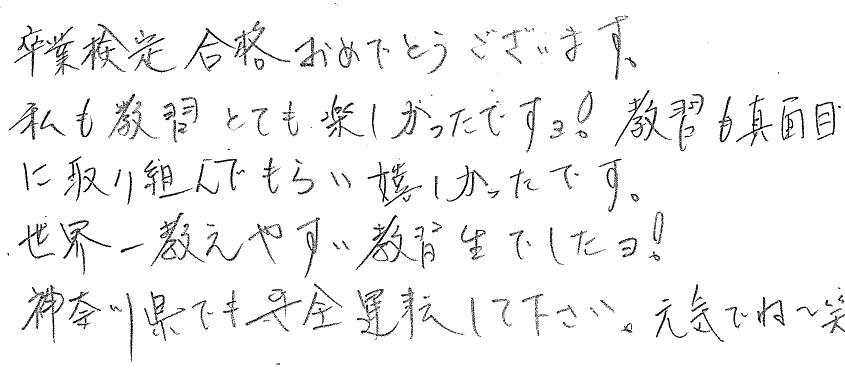 卒業検定合格おめでとうございます。
私も教習とても楽しかったですヨ!教習も真面目
に取り組んでもらい嬉しかったです。
世界一教えやすい教習生でしたヨ!
神奈川県でも安全運転して下さい。元気でね〜笑